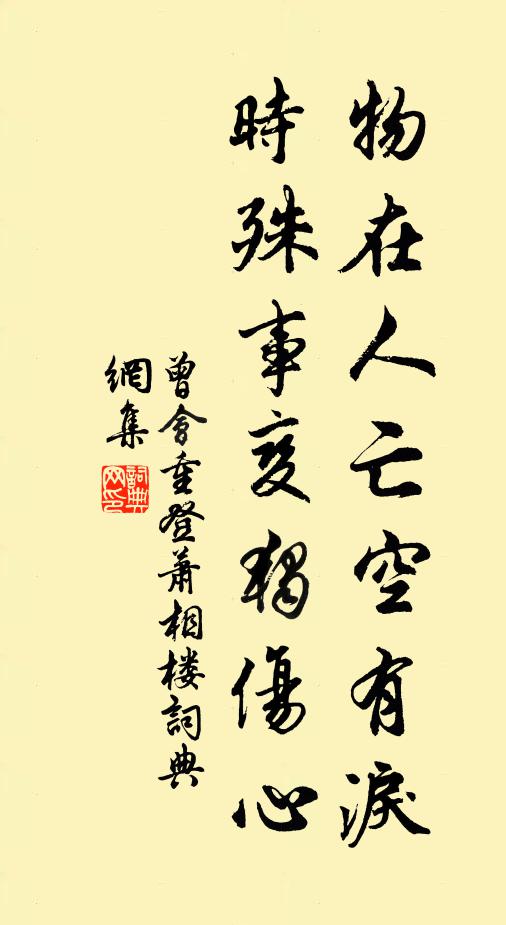 物在人亡空有淚
時殊事變獨傷心
曾會重登蕭相楼詞典
網集
詞典
网印